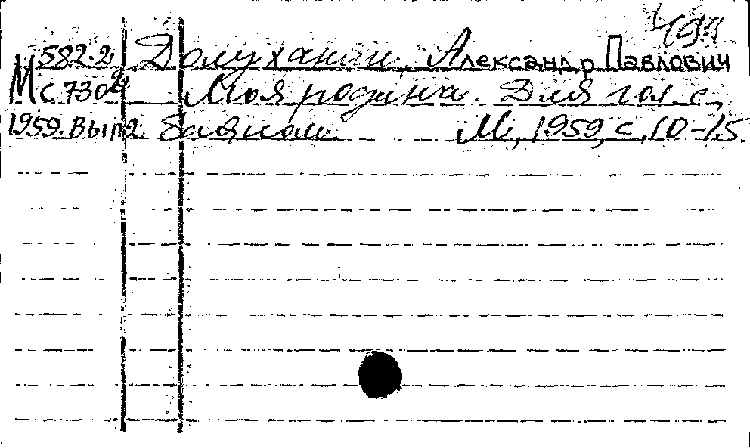 582.2 Долуханян, Александр Павлович
М С 730 Моя родина. Для гол. с
1959. Вып 2 баяном М., 1959, с. 10-15.